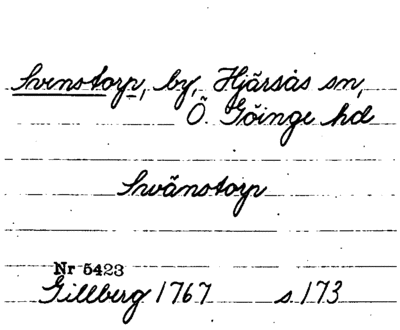 Svenstorp, by, Hjärsås sn,
Ö. Göinge hd
Swänstorp
Nr 5423
Gillberg 1767 s 173